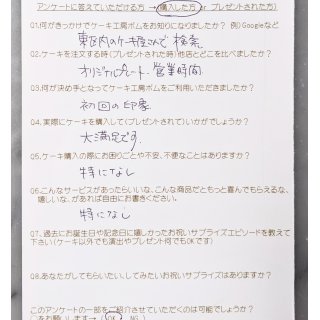 アンケートに答えていただける方 → 購入した方 or プレゼントされた方)
Q1.何がきっかけでケーキ工房ボムをお知りになりましたか？ 例)Googleなど
東区内のケーキ屋さんで 検索
Q2.ケーキを注文する時(プレゼントされた時)他店とどこを比べましたか？
オリジナルプレート、営業時間
Q3.何が決め手となってケーキ工房ボムをご利用いただきましたか？
初回の印象
Q4.実際にケーキを購入して(プレゼントされて)いかがでしょうか？
大満足です。
Q5.ケーキ購入の際にお困りごとや不安、不便なことはありますか？
特になし
Q6.こんなサービスがあったらいいな、こんな商品だともっと喜んでもらえるな、
嬉しいな、があれば自由にお書きください。
特になし
Q7. 過去にお誕生日や記念日に嬉しかったお祝いサプライズエピソードを教えて
下さい(ケーキ以外でも演出やプレゼント何でもOKです)
Q8.あなたがしてもらいたい、してみたいお祝いサプライズはありますか？
このアンケートの一部をご紹介させていただくのは可能でしょうか？
○をお願いします→ ( OK . NG )